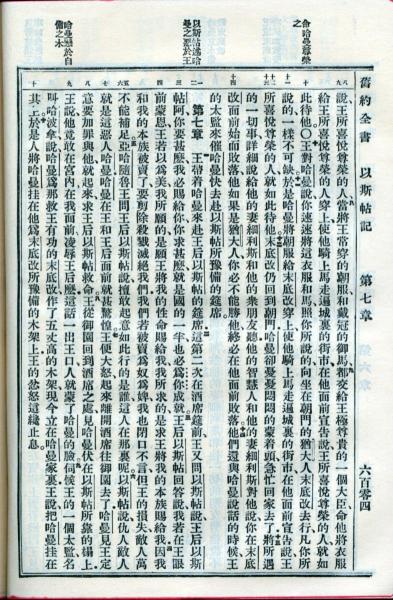 舊約全書 以斯帖記 第七章 六百零四
命哈曼尊榮之
以斯帖述哈曼之惡於王
哈曼懸於自備之木
說王所喜悅尊榮的人當將王常穿的朝服和戴冠的御馬都交給王極尊貴的一個大臣命他將衣服
給王所喜悅尊榮的人穿上使他騎上馬走遍城裏的街市在他面前宣告說王所喜悅尊榮的人就如
此待他〇王對哈曼說你速速將這衣服和馬照你所說的向坐在朝門的猶大人末底改去行凡你所
說的一樣不可缺於是哈曼將朝服給末底改穿上使他騎上馬走遍城裏的街市在他面前宣告說王
所喜悅尊榮的人就如此待他末底改仍回到朝門哈曼卻憂憂悶悶的蒙着頭急忙回家去了將所遇
的一切事詳細說給他的妻細利斯和他的衆朋友聽他的智慧人和他的妻細利斯對他說你在末底
改面前始而敗落他如果是猶大人你必不能勝他終必在他面前敗落他們還與哈曼說話的時候王
的太監來催哈曼快去赴以斯帖所預備的筵席
第七章 王帶着哈曼來赴王后以斯帖的筵席這第二次在酒席筵前王又問以斯帖說王后以斯
帖阿你要甚麼我必賜給你你求甚麼就是國的一半也必爲你成就王后以斯帖回答說我若在王眼
前蒙恩王若以爲美我所願的是願王將我的性命賜給我我所求的是求王將我的本族賜給我因我
和我的本族被賣了要剪除殺戮滅絕我們我們若被賣爲奴爲婢我也閉口不言但王的損失敵人萬
不能補足亞哈隨魯王問王后以斯帖說擅敢起意如此行的是誰這人在那裏呢以斯帖說仇人敵人
就是這惡人哈曼哈曼在王和王后面前就甚驚惶王便大怒起來離開酒席往御園去了哈曼見王定
意要加罪與他就起來求王后以斯帖救命王從御園回到酒席之處見哈曼伏在以斯帖所靠的榻上
王說他竟敢在宮內在我面前凌辱王后麼這話一出王口人就蒙了哈曼的臉伺候王的一個太監名
叫哈波拿說哈曼爲那救王有功的末底改作了五丈高的木架現今立在哈曼家裏王說把哈曼挂在
其上於是人將哈曼挂在他爲末底改所豫備的木架上王的忿怒這纔止息